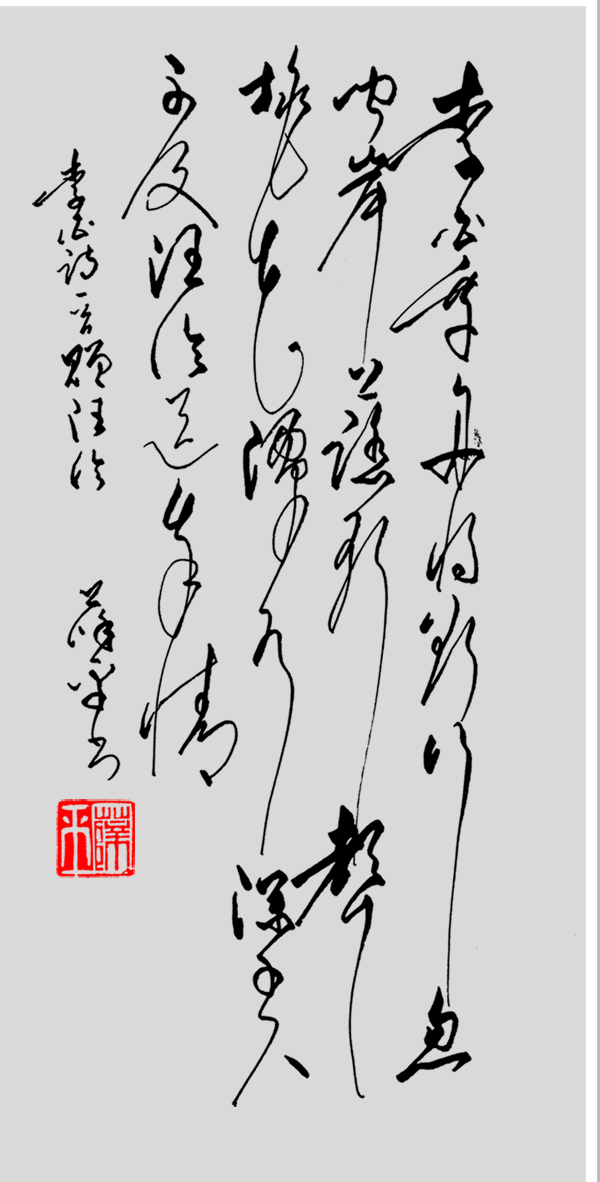 李白乘舟将欲行忽
闻岸上踏歌聲
桃花潭水深千尺
不及汪伦送我情
李白诗一首赠汪伦
薛平书
薛平